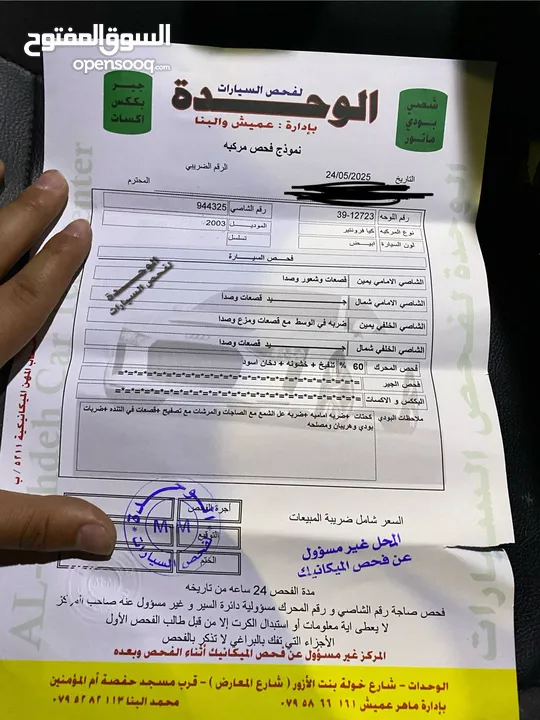 السوق المفتوح
opensooq.com
جير
بككس
إكسات
لفحص السيارات
الوحدة
بإدارة : عميش والبنا
شصي
بودي
ماتور
نموذج فحص مركبه
التاريخ 24/05/2025
الرقم الضريبي
المحترم
رقم اللوحه 39-12723 رقم الشاصي 944325
نوع المركبه كيا فرونتير الموديل 2003
لون السيارة ابيض تسلسل
فحص السيارة
الشاصي الامامي يمين قصعات وشعور وصدا
الشاصي الامامي شمال جيد قصعات وصدا
الشاصي الخلفي يمين ضربه في الوسط مع قصعات ومزع وصدا
الشاصي الخلفي شمال جيد قصعات وصدا
فحص المحرك 60 % تنفيخ + خشونه + دخان اسود
فحص الجير =-=-=-=-=-=-=-=-=-=-=-=-=
البككس و الاكسات =-=-=-=-=-=-=-=-=-=-=-=-=
ملاحظات البودي كحتات +ضربه اماميه +ضربه عل الشمع مع الصاجات والمرشات مع تصفيح +قصعات في التنده +ضربات
بودي وهريبان ومصلحه
الوحدة
لفحص السيارات
السعر شامل ضريبة المبيعات
أجرة الفحص
التوقيع
الختم
الوحدة
M-M
لفحص السيارات
المحل غير مسؤول
عن فحص الميكانيك
مدة الفحص 24 ساعه من تاريخه
فحص صاجة رقم الشاصي و رقم المحرك مسؤولية دائرة السير و غير مسؤول عنه صاحب المركز
لا يعطى اية معلومات أو استبدال الكرت إلا من قبل طالب الفحص الأول
الأجزاء التي تفك بالبراغي لا تذكر بالفحص
المركز غير مسؤول عن فحص الميكانيك أثناء الفحص وبعده
الوحدات - شارع خولة بنت الأزور ( شارع المعارض ) - قرب مسجد حفصة أم المؤمنين
بإدارة ماهر عميش ١٦١ ٦٦ ٥٨ ٠٧٩ - محمد البنا ١١٣ ٨٢ ٥٢ ٠٧٩
الوحدة لفحص السيارات
Car
enter